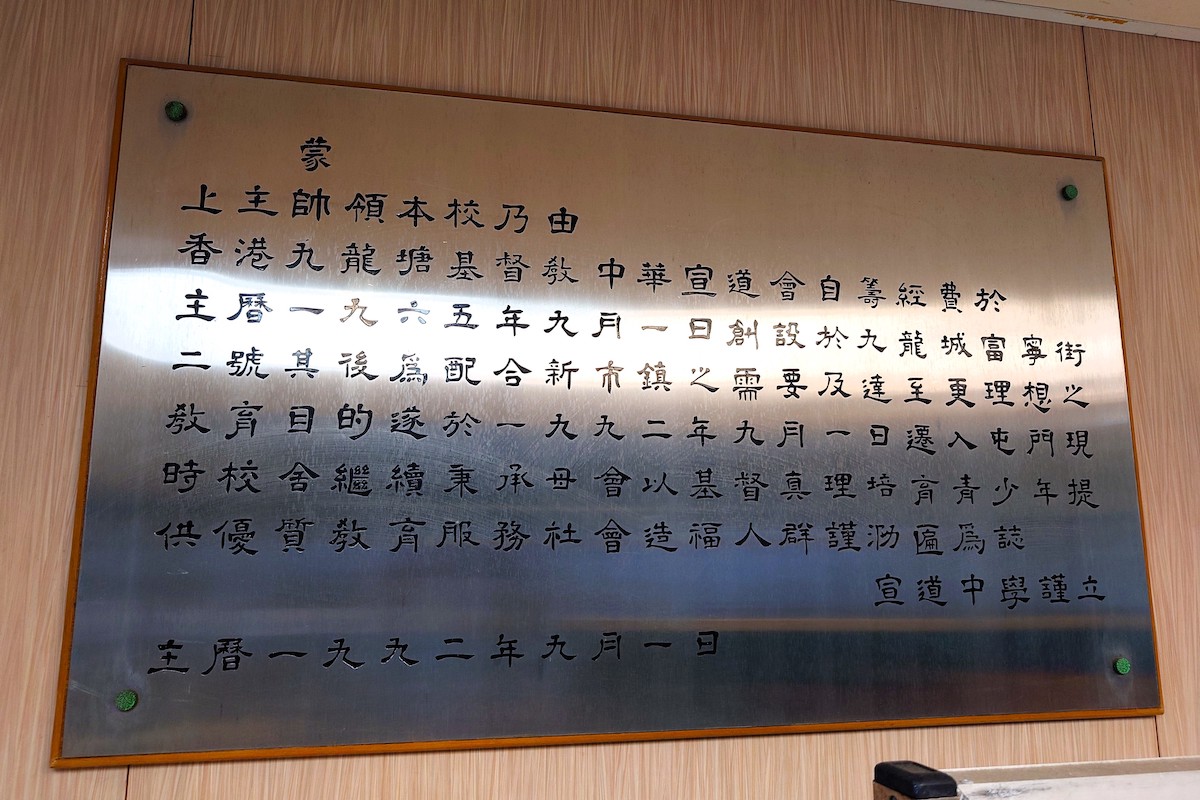 蒙
上主帥領本校乃由
香港九龍塘基督教中華宣道會自籌經費於
主曆一九六五年九月一日創設於九龍城富寧街
二號其後為配合新市鎮之需要及達至更理想之
教育目的遂於一九九二年九月一日遷入屯門現
時校舍繼續秉承母會以基督真理培育青少年提
供優質教育服務社會造福人群謹泐匾為誌
宣道中學謹立
主曆一九九二年九月一日